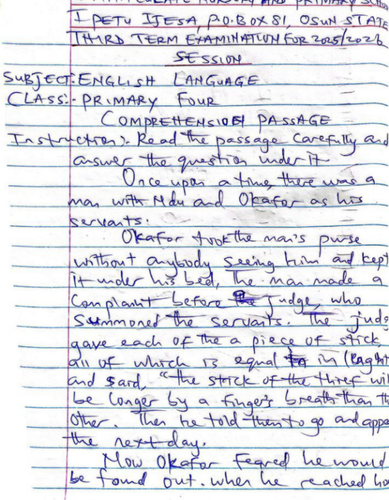 IMMACULATE NURSERY AND PRIMARY SCHOOL
IPETU IJESA, P.O.BOX 81, OSUN STATE
THIRD TERM EXAMINATION FOR 2025/202
SESSION
SUBJECT: ENGLISH LANGUAGE
CLASS:- PRIMARY FOUR
COMPREHENSION PASSAGE
Instruction:- Read the passage carefully and
answer the question under it
Once upon a time, there was a
man with Ndu and Okafor as his
servants.
Okafor took the man's purse
without anybody seeing him and kept
it under his bed, The man made a
Complaint before judge, who
summoned the servants. The jud
gave each of the a piece of stick
all of which is equal in length
and said, "the stick of the thief wil
be longer by a finger's breath than th
other. Then he told them to go and appe
the next day.
Now Okafor feared he would
be found out. when he reached ho